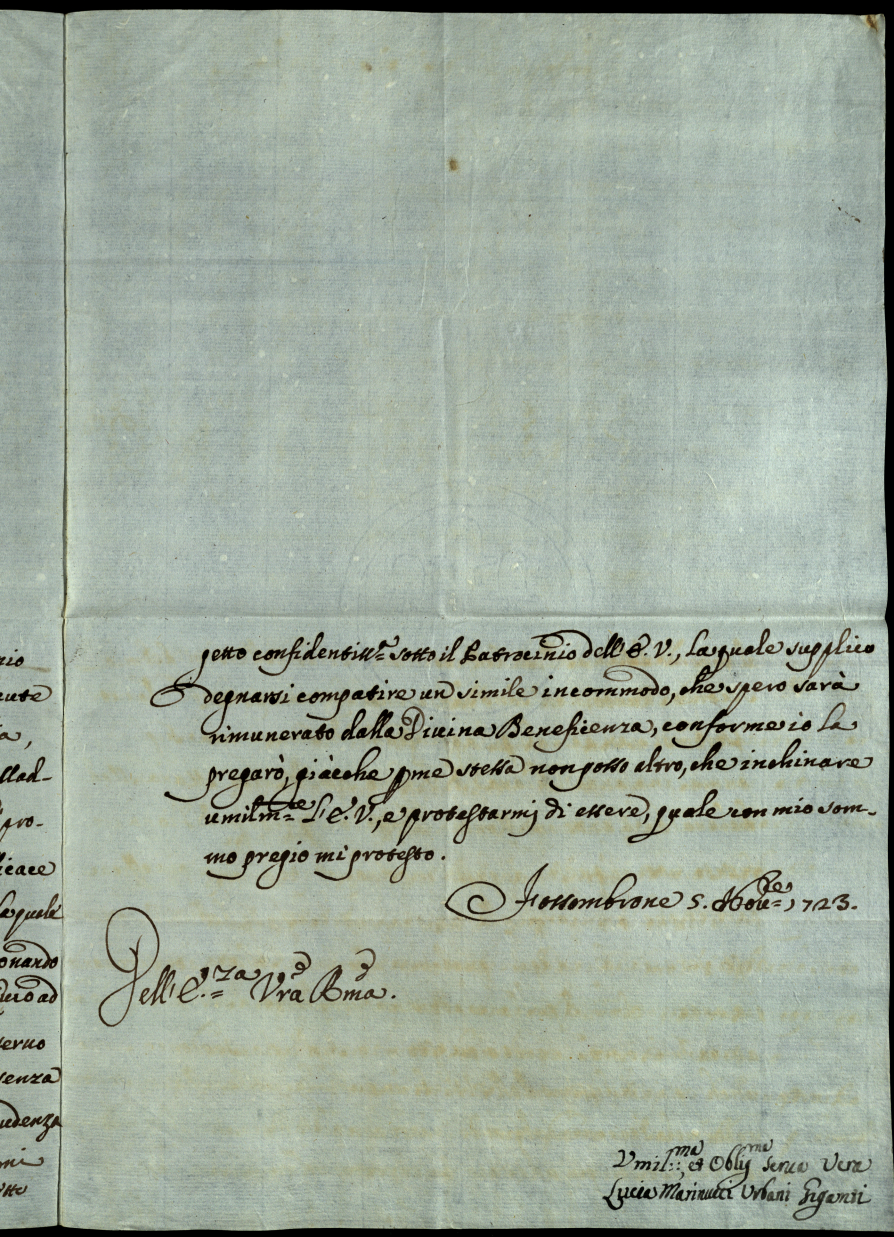 nio
ente
ia,
llad-
pro-
icace
la quale
onardo
uero ad
terno
senza
udenza
mi
getto confidentissᵉ sotto il Patrocinio dell'E. V., la quale supplico
degnarsi compatire un simile incommodo, che spero sarà
rimunerato dalla Divina Beneficenza, conforme io la
pregarò, giàcche p me stessa non posso altro, che inchinare
umilmᵗᵉ l'E. V., e protestarmj di essere, quale con mio som-
mo pregio mi protesto.
Fossombrone 5. Novᵇʳᵉ 1723.
Dell'E.ᶻᵃ Vrā Rmā.
Vmilᵐᵃ et Obligᵐᵃ Serua Vera
Lucia Marinucci Vrbani Giganti